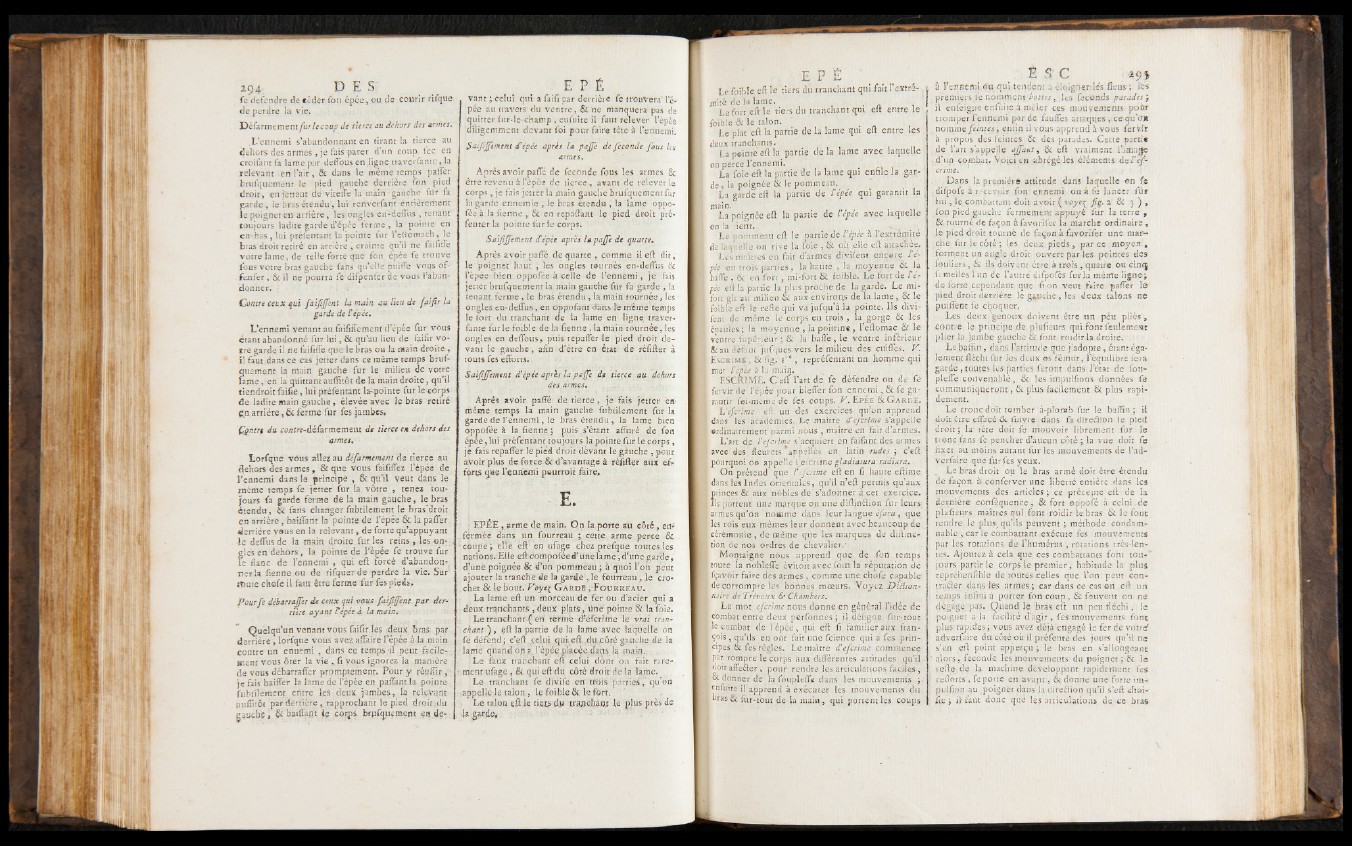 294 DES
se défendre de céder son épée, ou de courir risque
de perdre la vie.
Désarmement sur le coup de tierce au dehors des armes.
L'ennemi s'abandonnant en tirant la tierce au
dehors des armes, je fais parer d'un coup sec en
croisant sa lame par dessous en ligne traversante, la
relevant en l'air, & dans le même temps passer
brusquement le pied gauche derrière son pied
droit, en jettant de vîtesse la main gauche sur sa
garde, le bras étendu, lui renversant entièrement
le poignet en arrière, les ongles en-dessus, tenant
toujours ladite garde d'épée ferme, la pointe en
en-bas, lui présentant la pointe sur l'estomach, le
bras droit retiré en arrière, crainte qu'il ne saisisse
votre lame, de telle sorte que son épée se trouve
sous votre bras gauche sans qu'elle puisse vous offenser,
& il ne pourra se dispenser de vous l'abandonner.
Contre ceux qui saisissent la main au lieu de saisir la
garde de l'épée.
L'ennemi venant au saisissement d'épée sur vous
étant abandonné sur lui, & qu'au lieu de saisir votre
garde il ne saisisse que le bras ou la main droite,
il faut dans ce cas jetter dans ce même temps brusquement
la main gauche sur le milieu de votre
lame, en la quittant aussitôt de la main droite, qu'il
tiendroit saisie, lui présentant la pointe sur le corps
de ladite main gauche, élevée avec le bras retiré
en arrière, & ferme sur ses jambes.
Contre du contre-désarmement de tierce en dehors des
armes.
Lorsque vous allez au désarmement de tierce au
dehors des armes, & que vous saisissez l'épée de
l'ennemi dans le principe, & qu'il veut dans le
même temps se jetter sur la vôtre, tenez toujours
sa garde ferme de la main gauche, le bras
étendu, & sans changer subtilement le bras droit
en arrière, baissant la pointe de l'épée & la passer
derrière vous en la relevant, de sorte qu'appuyant
le dessus de la main droite sur les reins, les ongles
en dehors, la pointe de l'épée se trouve sur
le flanc de l'ennemi, qui est forcé d'abandonner
la sienne ou de risquer de perdre la vie. Sur
toute chose il faut être ferme sur ses pieds.
Pour se débarrasser de ceux qui vous saisissent par derrière
ayant l'épée à la main.
Quelqu'un venant vous saisir les deux bras par
derrière, lorsque vous avez affaire l'épée à la main
contre un ennemi, dans ce temps il peut facilement
vous ôter la vie, si vous ignorez la manière
de vous débarrasser promptement. Pour y réussir,
je fais baisser la lame de l'épée en passant la pointe
subtilement entre les deux jambes, la relevant
aussitôt par derrière, rapprochant le pied droit du
gauche, & baissant le corps brusquement en de-
EPÉ
vant; celui qui a saisi par derrière se trouvera l'épée
au travers du ventre, & ne manquera pas de
quitter sur-le-champ, ensuite il faut relever l'épée
diligemment devant soi pour faire tête à l'ennemi.
Saisissement d'épée après la passe de seconde sous les
armes.
Après avoir passé de seconde sous les armes &
être revenu à l'épée de tierce, avant de relever le
corps, je fais jetter la main gauche brusquement sur
la garde ennemie, le bras étendu, la lame opposée
à la sienne, & en repassant le pied droit présenter
la pointe sur le corps.
Saisissement d'épée après la passe de quarte.
Après avoir passé de quarte, comme il est dit,
le poignet haut, les ongles tournés en-dessus &
l'épée bien opposée à celle de l'ennemi, je fais
jetter brusquement la main gauche sur sa garde, la
tenant ferme, le bras étendu, la main tournée, les
ongles en-dessus, en opposant dans le même temps
le fort du tranchant de la lame en ligne traversante
sur le foible de la sienne, la main tournée, les
ongles en dessous, puis repasser le pied droit devant
le gauche, afin d'être en état de résister à
tous ses efforts.
Saisissement d'épée après la passe de tierce au dehors
des armes.
Après avoir passé de tierce, je fais jetter en
même temps la main gauche subtilement sur la
garde de l'ennemi, le bras étendu, la lame bien
opposée à la sienne; puis s'étant assuré de son
épée, lui présentant toujours la pointe sur le corps,
je fais repasser le pied droit devant le gauche, pour
avoir plus de force & d'avantage à résister aux efforts
que l'ennemi pourroit faire.
E.
EPÉE, arme de main. On la porte au côté, enfermée
dans un fourreau; cette arme perce &
coupe, elle est en usage chez presque toutes les
nations. Elle est composée d'une lame, d'une garde,
d'une poignée & d'un pommeau; à quoi l'on peut
ajouter la tranche de la garde, le fourreau, le crochet
& le bout. Voyez GARDE, FOURREAU.
La lame est un morceau de fer ou d'acier qui a
deux tranchants, deux plats, une pointe & la soie.
Le tranchant (en terme d'escrime le vrai tranchant),
est la partie de la lame avec laquelle on
se défend; c'est celui qui est du côté gauche de la
lame quand on a l'épée placée dans la main.
Le faux tranchant est celui dont on fait rarement
usage, & qui est du côté droit de la lame.
Le tranchant se divise en trois parties, qu'on
appelle le talon, le foible & le fort.
Le talon est le tiers du tranchant le plus près de
la garde.
EPÉ
Le foible est le tiers du tranchant qui fait l'extrêmité
de la lame.
Le fort est le tiers du tranchant qui est entre le
foible & le talon.
Le plat est la partie de la lame qui est entre les
deux tranchants.
La pointe est la partie de la lame avec laquelle
on perce l'ennemi.
La soie est la partie de la lame qui enfile la garde,
la poignée & le pommeau.
La garde est la partie de l'épée qui garantit la
main.
La poignée est la partie de l'épée avec laquelle
on la tient.
Le pommeau est le partie de l'épée à l'extrêmité
de laquelle on rive la soie, & où elle est attachée.
Les maîtres en fait d'armes divisent encore l'épée
en trois parties, la haute, la moyenne & la
basse, & en fort, mi-fort & foible. Le fort de l'épée
est la partie la plus proche de la garde. Le mi-
fort gît au milieu & aux environs de la lame, & le
foible est le reste qui va jusqu'à la pointe. Ils divisent
de même le corps en trois, la gorge & les
épaules; la moyenne, la poitrine, l'estomac & le
ventre supérieur; & la basse, le ventre inférieur
& au dessous jusques vers le milieu des cuisses. V.
ESCRIME, & fig. , représentant un homme qui
met l'épée à la main.
ESCRIME. C'est l'art de se défendre ou de se
servir de l'épée pour blesser son ennemi, & se garantir
soi-même de ses coups. V. EPÉE & GARDE.
L'escrime est un des exercices qu'on apprend
dans les académies. Le maître d'escrime s'appelle
ordinairement parmi nous, maître en fait d'armes.
L'art de l'escrime s'acquiert en faisant des armes
avec des fleurets appellés en latin rudes; c'est
pourquoi on appelle l'escrime gladiatura rudiara.
On prétend que l'escrime est en si haute estime
dans les Indes orientales, qu'il n'est permis qu'aux
princes & aux nobles de s'adonner à cet exercice.
Ils portent une marque ou une distinction sur leurs
armes qu'on nomme dans leur langue esaru, que
les rois eux mêmes leur donnent avec beaucoup de
cérémonie, de même que les marques de distinction
de nos ordres de chevalier.
Montaigne nous apprend que de son temps
toute la noblesse évitoit avec soin la réputation de
sçavoir faire des armes, comme une chose capable
de corrompre les bonnes mœurs. Voyez Dictionnaire
de Trévoux & Chambers.
Le mot escrime nous donne en général l'idée de
combat entre deux personnes; il désigne sur-tout
le combat de l'épée, qui est si familier aux françois,
qu'ils en ont fait une science qui a ses principes
& ses règles. Le maître d'escrime commence
par rompre le corps aux différentes attitudes qu'il
doit affecter, pour rendre les articulations faciles,
& donner de la souplesse dans les mouvements;
ensuite il apprend à exécuter les mouvements du
bras & sur-tout de la main, qui portent les coups
ESC 295
à l'ennemi ou qui tendent à éloigner les siens; les
premiers se nomment bottes, les seconds parades;
il enseigne ensuite à mêler ces mouvements pour
tromper l'ennemi par de fausses attaques, ce qu'on
nomme feintes, enfin il vous apprend à vous servir
à propos des feintes & des parades. Cette partie
de l'art s'appelle assaut, & est vraiment l'image
d'un combat. Voici en abrégé les éléments de l'escrime.
Dans la première attitude dans laquelle on se
dispose à recevoir son ennemi ou à se lancer sur
lui, le combattant doit avoir (voyez fig. 2 & 3),
son pied gauche fermement appuyé sur la terre,
& tourné de façon à favoriser la marche ordinaire,
le pied droit tourné de façon à favoriser une marche
sur le côté; les deux pieds, par ce moyen,
forment un angle droit ouvert par les pointes des
souliers, & ils doivent être à trois, quatre ou cinq
semelles l'un de l'autre disposés sur la même ligne;
de sorte cependant que si on veut faire passer le
pied droit derrière le gauche, les deux talons ne
puissent se choquer.
Les deux genoux doivent être un peu pliés,
contre le principe de plusieurs qui font seulement
plier la jambe gauche & font roidir la droite.
Le bassin, dans l'attitude que j'adopte, étant également
fléchi sur les deux os fémur, l'équilibre sera
garde, toutes les parties seront dans l'état de souplesse
convenable, & les impulsions données se
communiqueront, & plus facilement & plus rapidement.
Le tronc doit tomber à-plomb sur le bassin; il
doit être effacé & suivre dans sa direction le pied
droit; la tête doit se mouvoir librement sur le
tronc sans se pencher d'aucun côté; la vue doit se
fixer au moins autant sur les mouvements de l'adversaire
que sur ses yeux.
Le bras droit ou le bras armé doit être étendu
de façon à conserver une liberté entière dans les
mouvements des articles; ce précepte est de la
dernière conséquence, & fort opposé à celui de
plusieurs maîtres qui font roidir le bras & le font
tendre le plus qu'ils peuvent; méthode condamnable,
car le combattant exécute ses mouvements
par les rotations de l'humérus, rotations très-lentes.
Ajoutez à cela que ces combattants sont toujours
partir le corps le premier, habitude la plus
repréhensible de toutes celles que l'on peut contracter
dans les armes; car dans ce cas on est un
temps infini à porter son coup, & souvent on ne
dégage pas. Quand le bras est un peu fléchi, le
poignet a la facilité d'agir, ses mouvements sont
plus rapides; vous avez déjà engagé le fer de votre
adversaire du côté où il présente des jours qu'il ne
s'en est point apperçu; le bras en s'allongeant
alors, seconde les mouvements du poignet; & le
reste de la machine développant rapidement ses
ressorts, se porte en avant, & donne une forte impulsion
au poignet dans la direction qu'il s'est choisie;
il faut donc que les articulations de ce bras